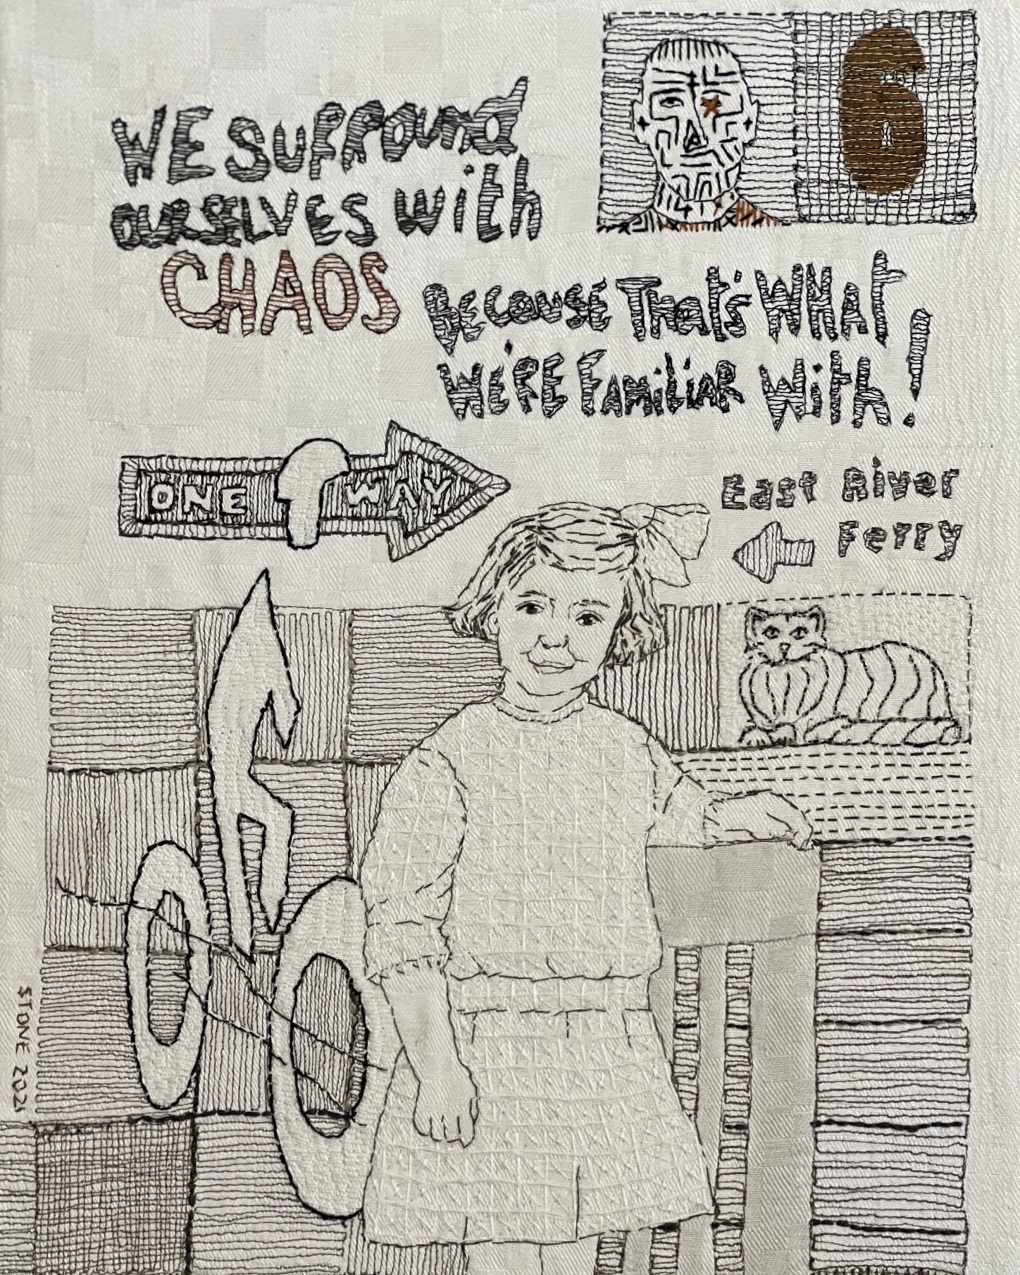 WE SURROUND
OURSELVES with
CHAOS
BECAUSE That's WHAT
WE'RE FAMILIAR WITH!
6
ONE WAY
East River
Ferry
STONE 2021